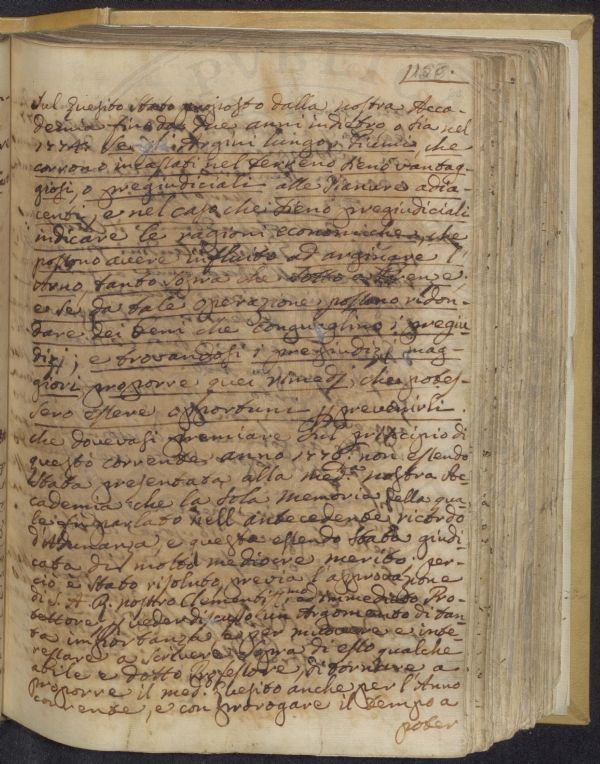 1158.
Sul Quesito stato proposto dalla nostra Acca-
demia fino da due anni indietro o sia nel
1774. Se gl'Argini lungo i Fiumi che
corrono incassati nel terreno sieno vantag-
giosi, o pregiudiciali alle Pianure adia-
centi, e nel caso che sieno pregiudiciali
indicare le ragioni economiche, che
possono avere influito ad arginare l'
Arno tanto sopra che sotto a Firenze,
e se da tale operazione possano ridon-
dare dei beni che conguaglino i pregiu-
dizj; e trovandosi i pregiudizj mag-
giori proporre quei rimedj che potes-
sero essere opportuni p prevenirli.
che dovevasi premiare sul principio di
questo corrente anno 1776. non essendo
stata presentata alla med.ma nostra Ac-
cademia che la sola memoria della qua-
le fu parlato nell'antecedente ricordo
d'Adunanza, e questa essendo stata giudi-
cata di molto mediocre merito, per-
ciò è stato risoluto, previa l'approvazione
di S. A. R. nostro Clementiss.mo e immediato Pro-
tettore p veder discusso un Argomento di tan-
ta importanza e per muovere e inte-
ressare a scrivere sopra di esso qualche
abile e dotto Professore, di tornare a
proporre il med. Quesito anche per l'Anno
corrente, e con prorogare il tempo a
poter